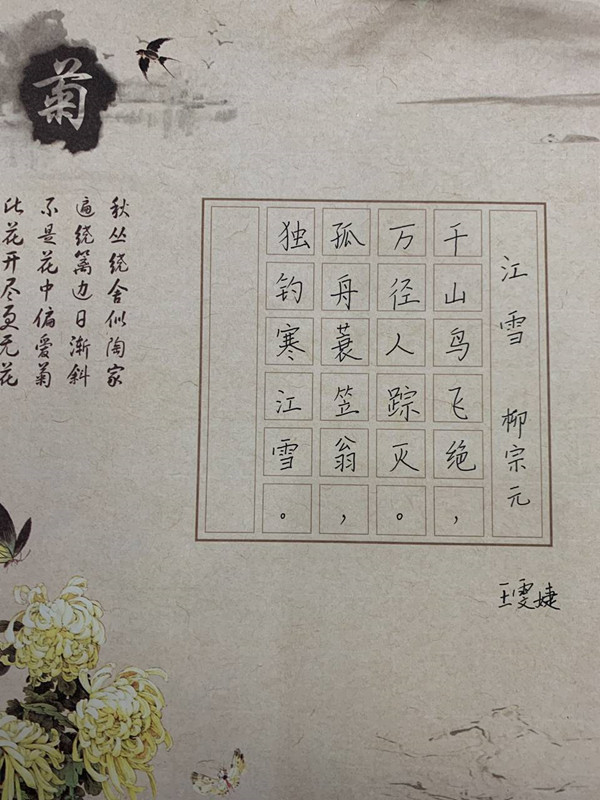 江雪 柳宗元
千山鸟飞绝，
万径人踪灭。
孤舟蓑笠翁，
独钓寒江雪。
王雯婕
菊
秋丛绕舍似陶家
遍绕篱边日渐斜
不是花中偏爱菊
此花开尽更无花